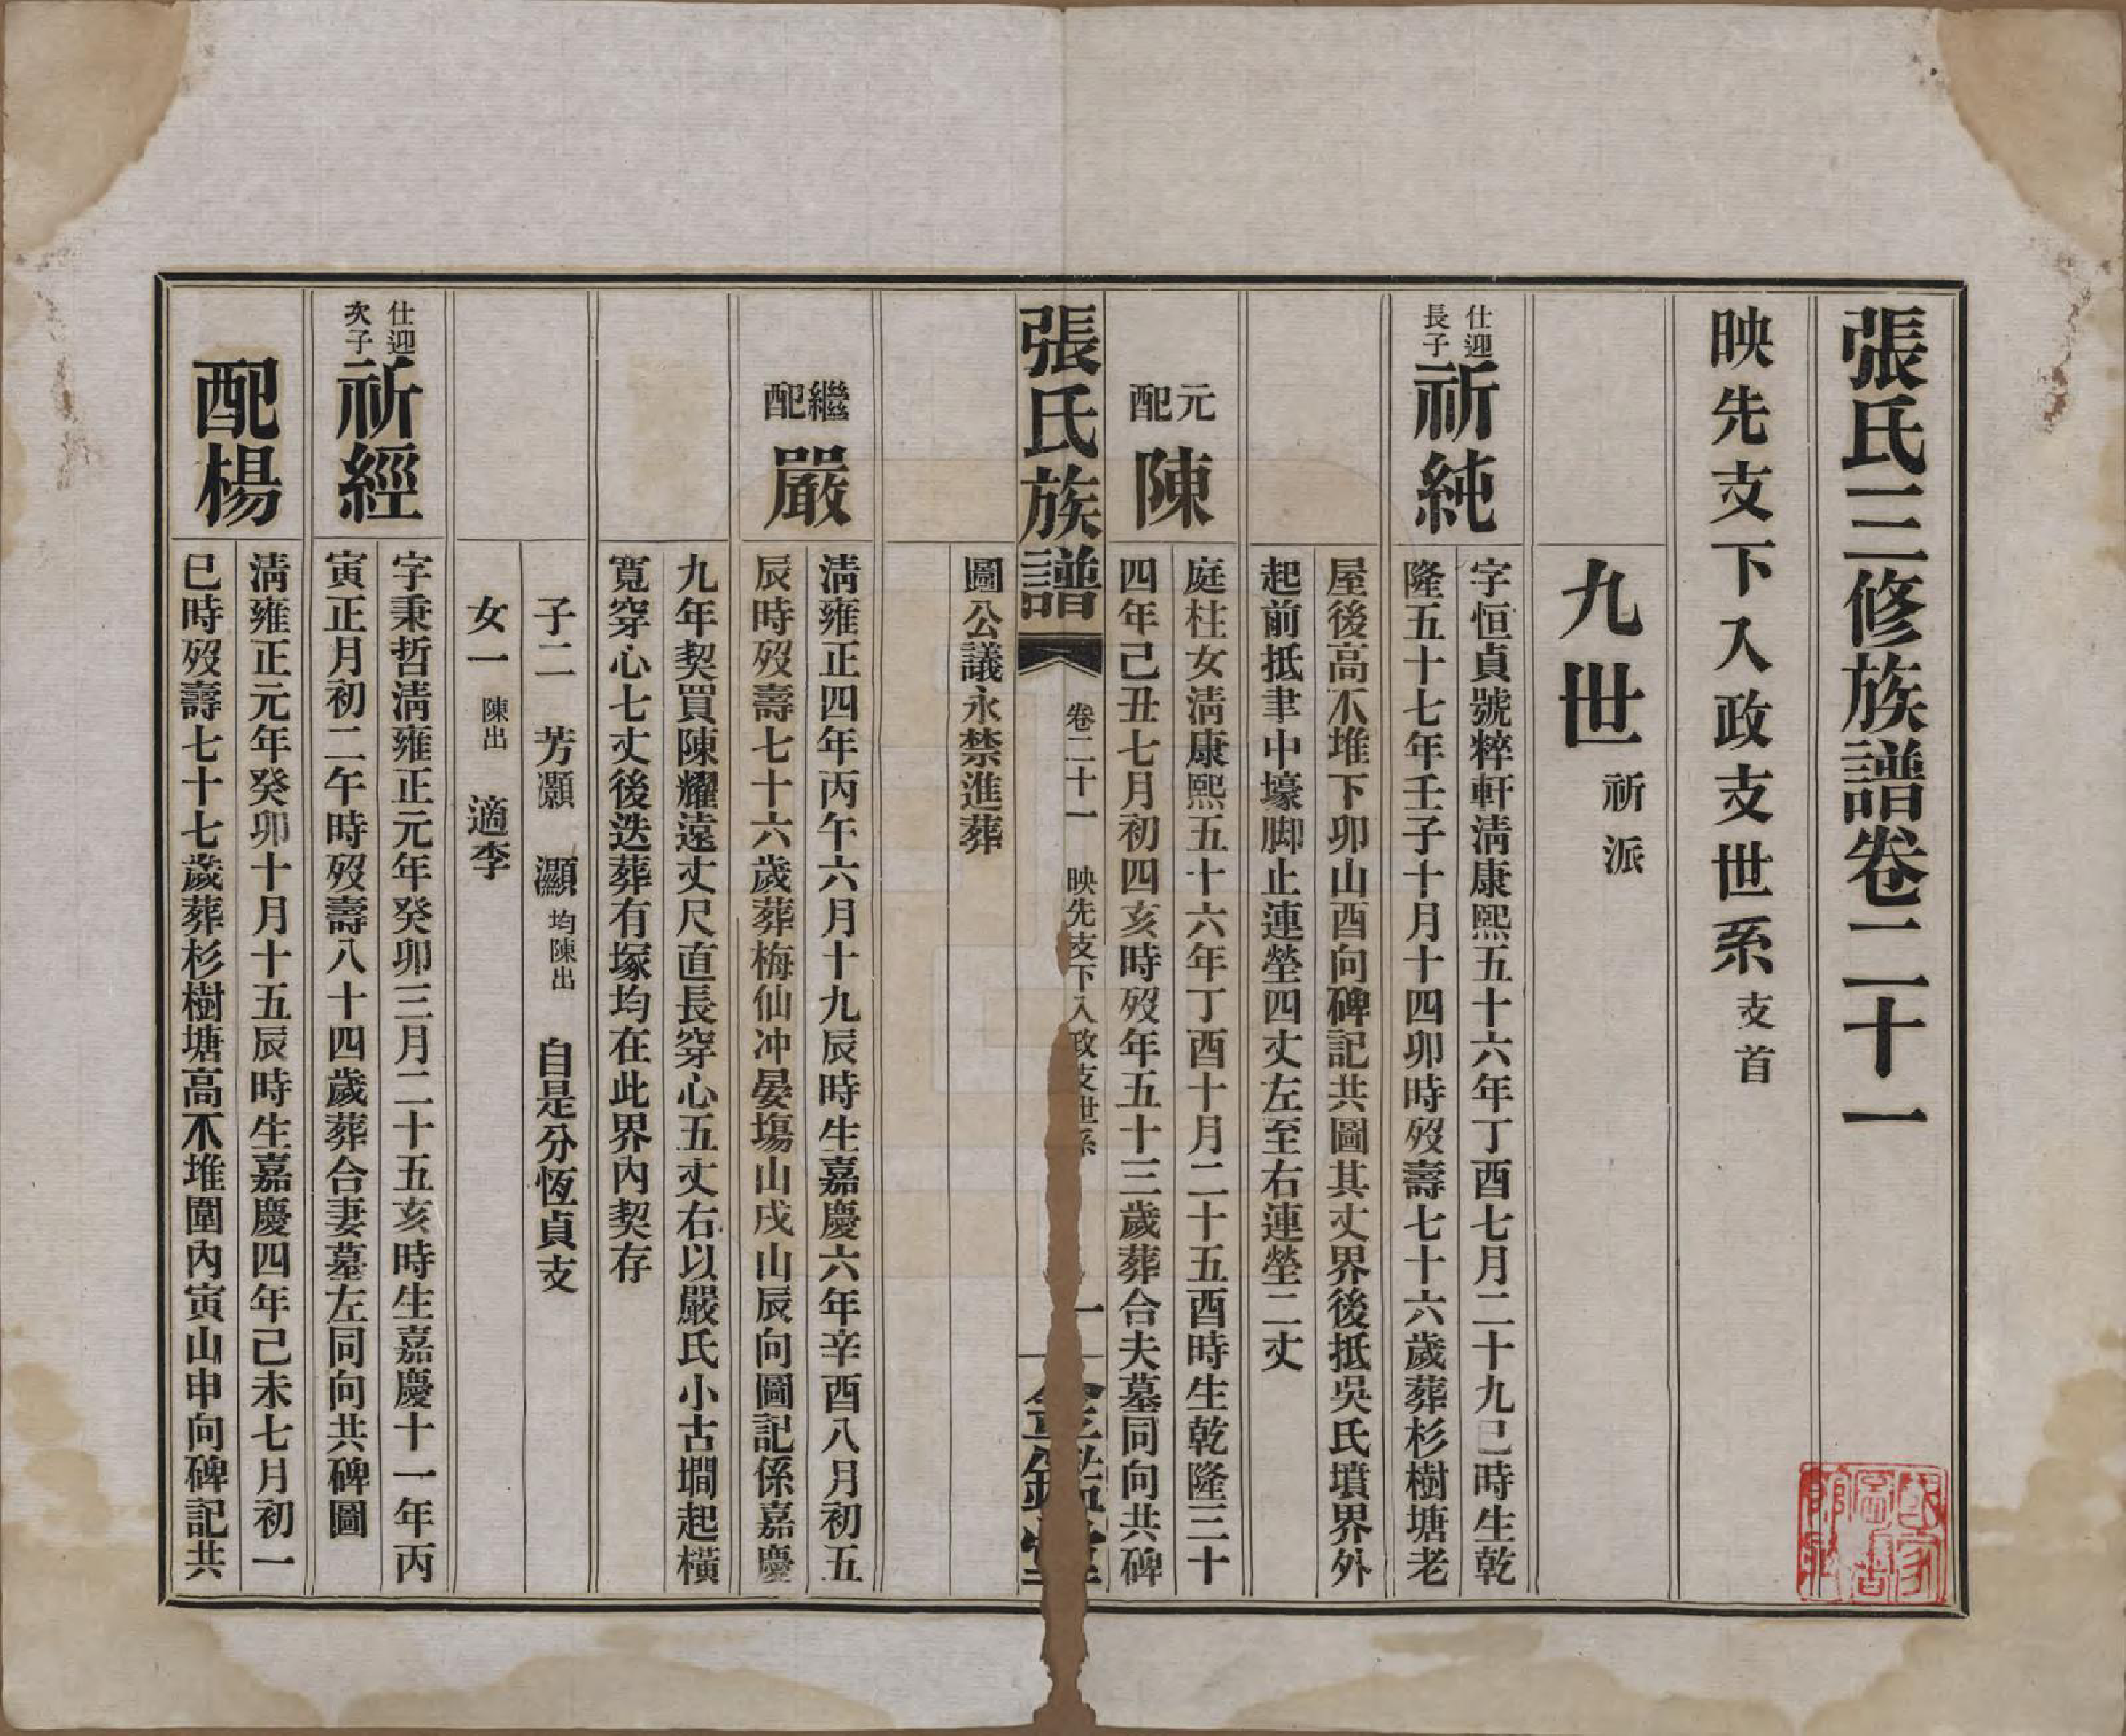 張氏三修族譜卷二十一
映先支下入政支世系支首
九世祈派
仕迎長子祈純
字恒貞號粹軒淸康熙五十六年丁酉七月二十九巳時生乾
隆五十七年壬子十月十四卯時歿壽七十六歲葬杉樹塘老
屋後高不堆下卯山酉向碑記共圖其丈界後抵吳氏墳界外
起前抵聿中壕脚止連塋四丈左至右連塋二丈
元配陳
庭柱女淸康熙五十六年丁酉十月二十五酉時生乾隆三十
四年己丑七月初四亥時歿年五十三歲葬合夫墓同向共碑
張氏族譜 卷二十一 映先支下入政支世系 一 金鑑堂
圖公議永禁進葬
繼配嚴
淸雍正四年丙午六月十九辰時生嘉慶六年辛酉八月初五
辰時歿壽七十六歲葬梅仙冲晏塲山戌山辰向圖記係嘉慶
九年契買陳耀遠丈尺直長穿心五丈右以嚴氏小古墹起橫
寬穿心七丈後迭葬有塚均在此界內契存
子二 芳灝 灝均陳出 自是分恆貞支
女一陳出 適李
仕迎次子祈經
字秉哲淸雍正元年癸卯三月二十五亥時生嘉慶十一年丙
寅正月初二午時歿壽八十四歲葬合妻墓左同向共碑圖
配楊
淸雍正元年癸卯十月十五辰時生嘉慶四年己未七月初一
巳時歿壽七十七歲葬杉樹塘高不堆圍內寅山申向碑記共